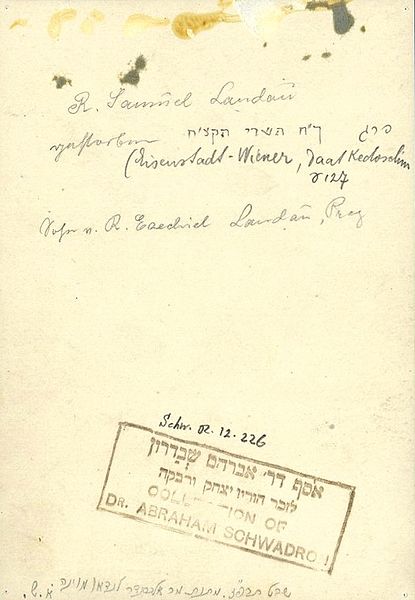 R. Samuel Landau
gestorben כ"ח תשרי תקצ"ח פרג
(Eisenstadt-Wiener, Daat Kedoschim
127
Sohn v. R. Ezechiel Landau, Prag
Schw. 02.12.226
אסף דר' אברהם שבדרון
לזכר הוריו יצחק ורבקה
COLLECTION OF
DR. ABRAHAM SCHWADRON
מתנת מר אלכסנדר לנדאו מוינה